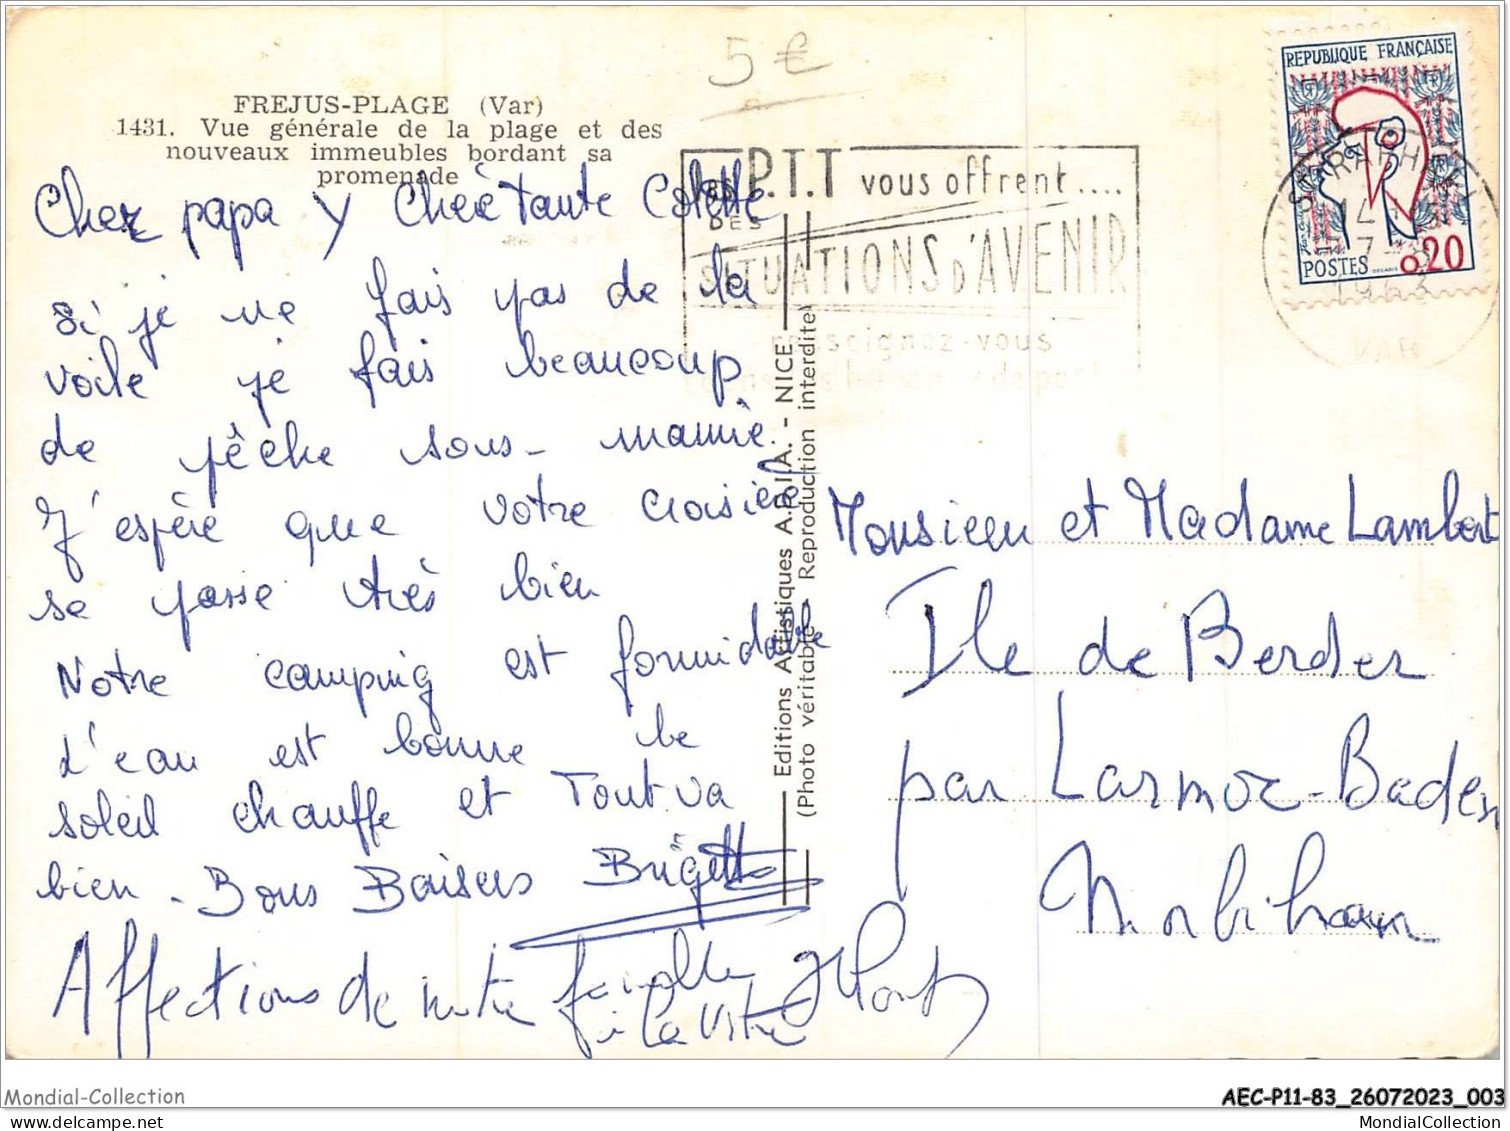 5 €
FREJUS-PLAGE (Var)
1431. Vue générale de la plage et des
nouveaux immeubles bordant sa
promenade
Cher papa y Chère Tante Colette
Si je ne fais pas de la
voile je fais beaucoup
de pêche sous-marine.
J'espère que votre croisière
se passe très bien
Notre camping est formidable
L'eau est bonne le
soleil chauffe et Tout va
bien. Bons Baisers Brigitte
Affections de notre famille
à la vôtre
Editions Artistiques A.R.I.A. - NICE
(Photo véritable - Reproduction interdite)
LES P.T.T vous offrent....
DES
SITUATIONS D'AVENIR
renseignez-vous
dans les bureaux de poste
REPUBLIQUE FRANÇAISE
POSTES 0,20
ST RAPHAEL
1963
VAR
Monsieur et Madame Lambert
Ile de Berder
par Larmor-Baden
Morbihan
Mondial-Collection
AEC-P11-83_26072023_003
MondialCollection